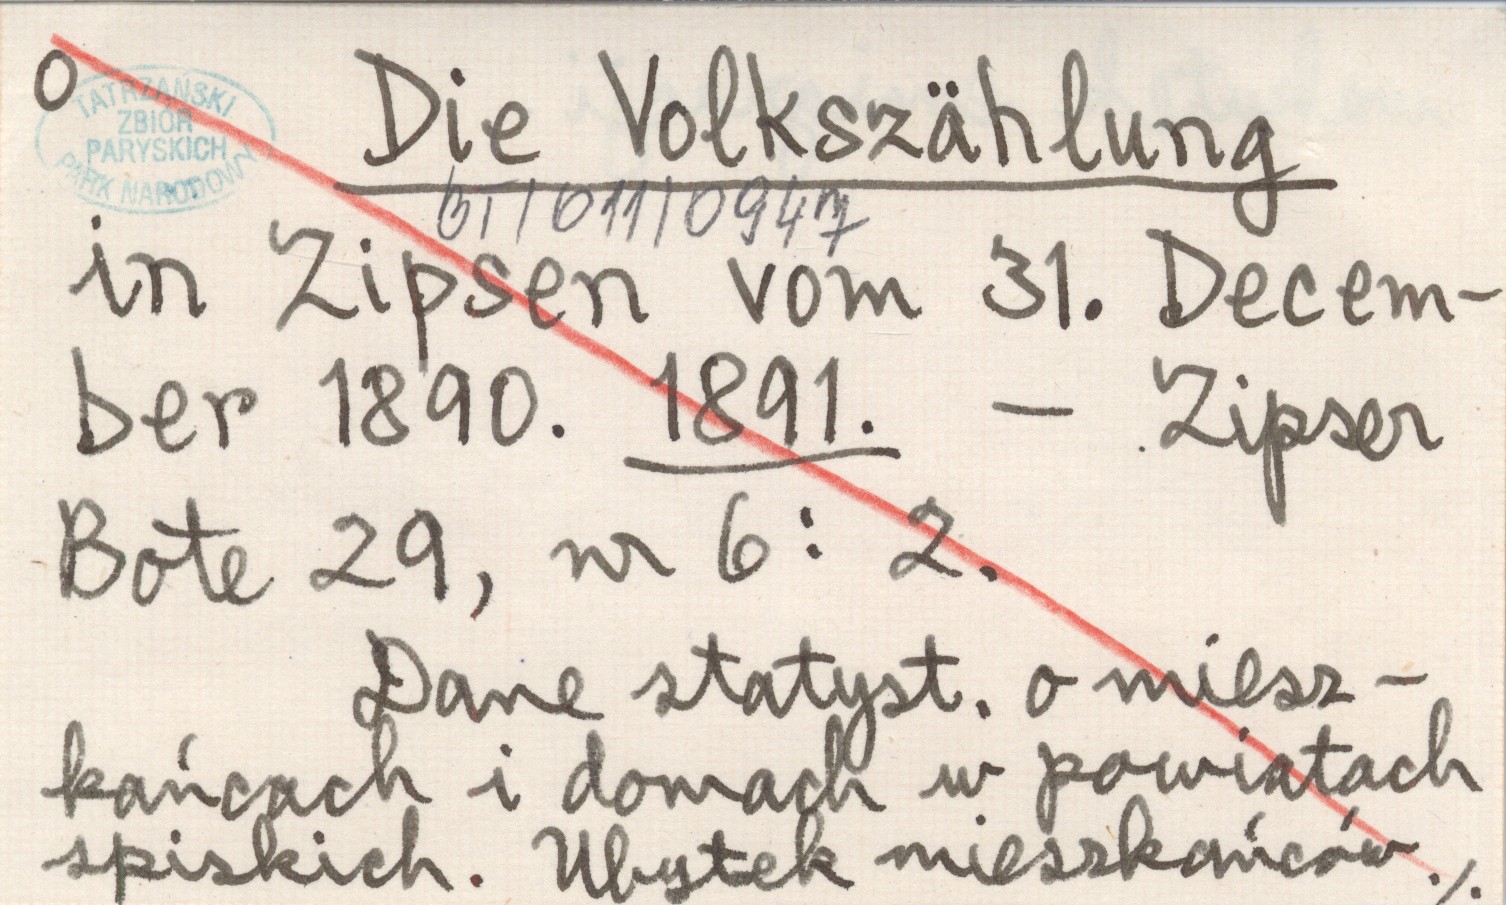 O
TATRZAŃSKI
ZBIÓR
PARYSKICH
PARK NARODOWY
Die Volkszählung
BT/011/0947
in Zipsen vom 31. Decem-
ber 1890. 1891. — Zipser
Bote 29, nr 6: 2.
Dane statyst. o miesz-
kańcach i domach w powiatach
spiskich. Ubytek mieszkańców ./.